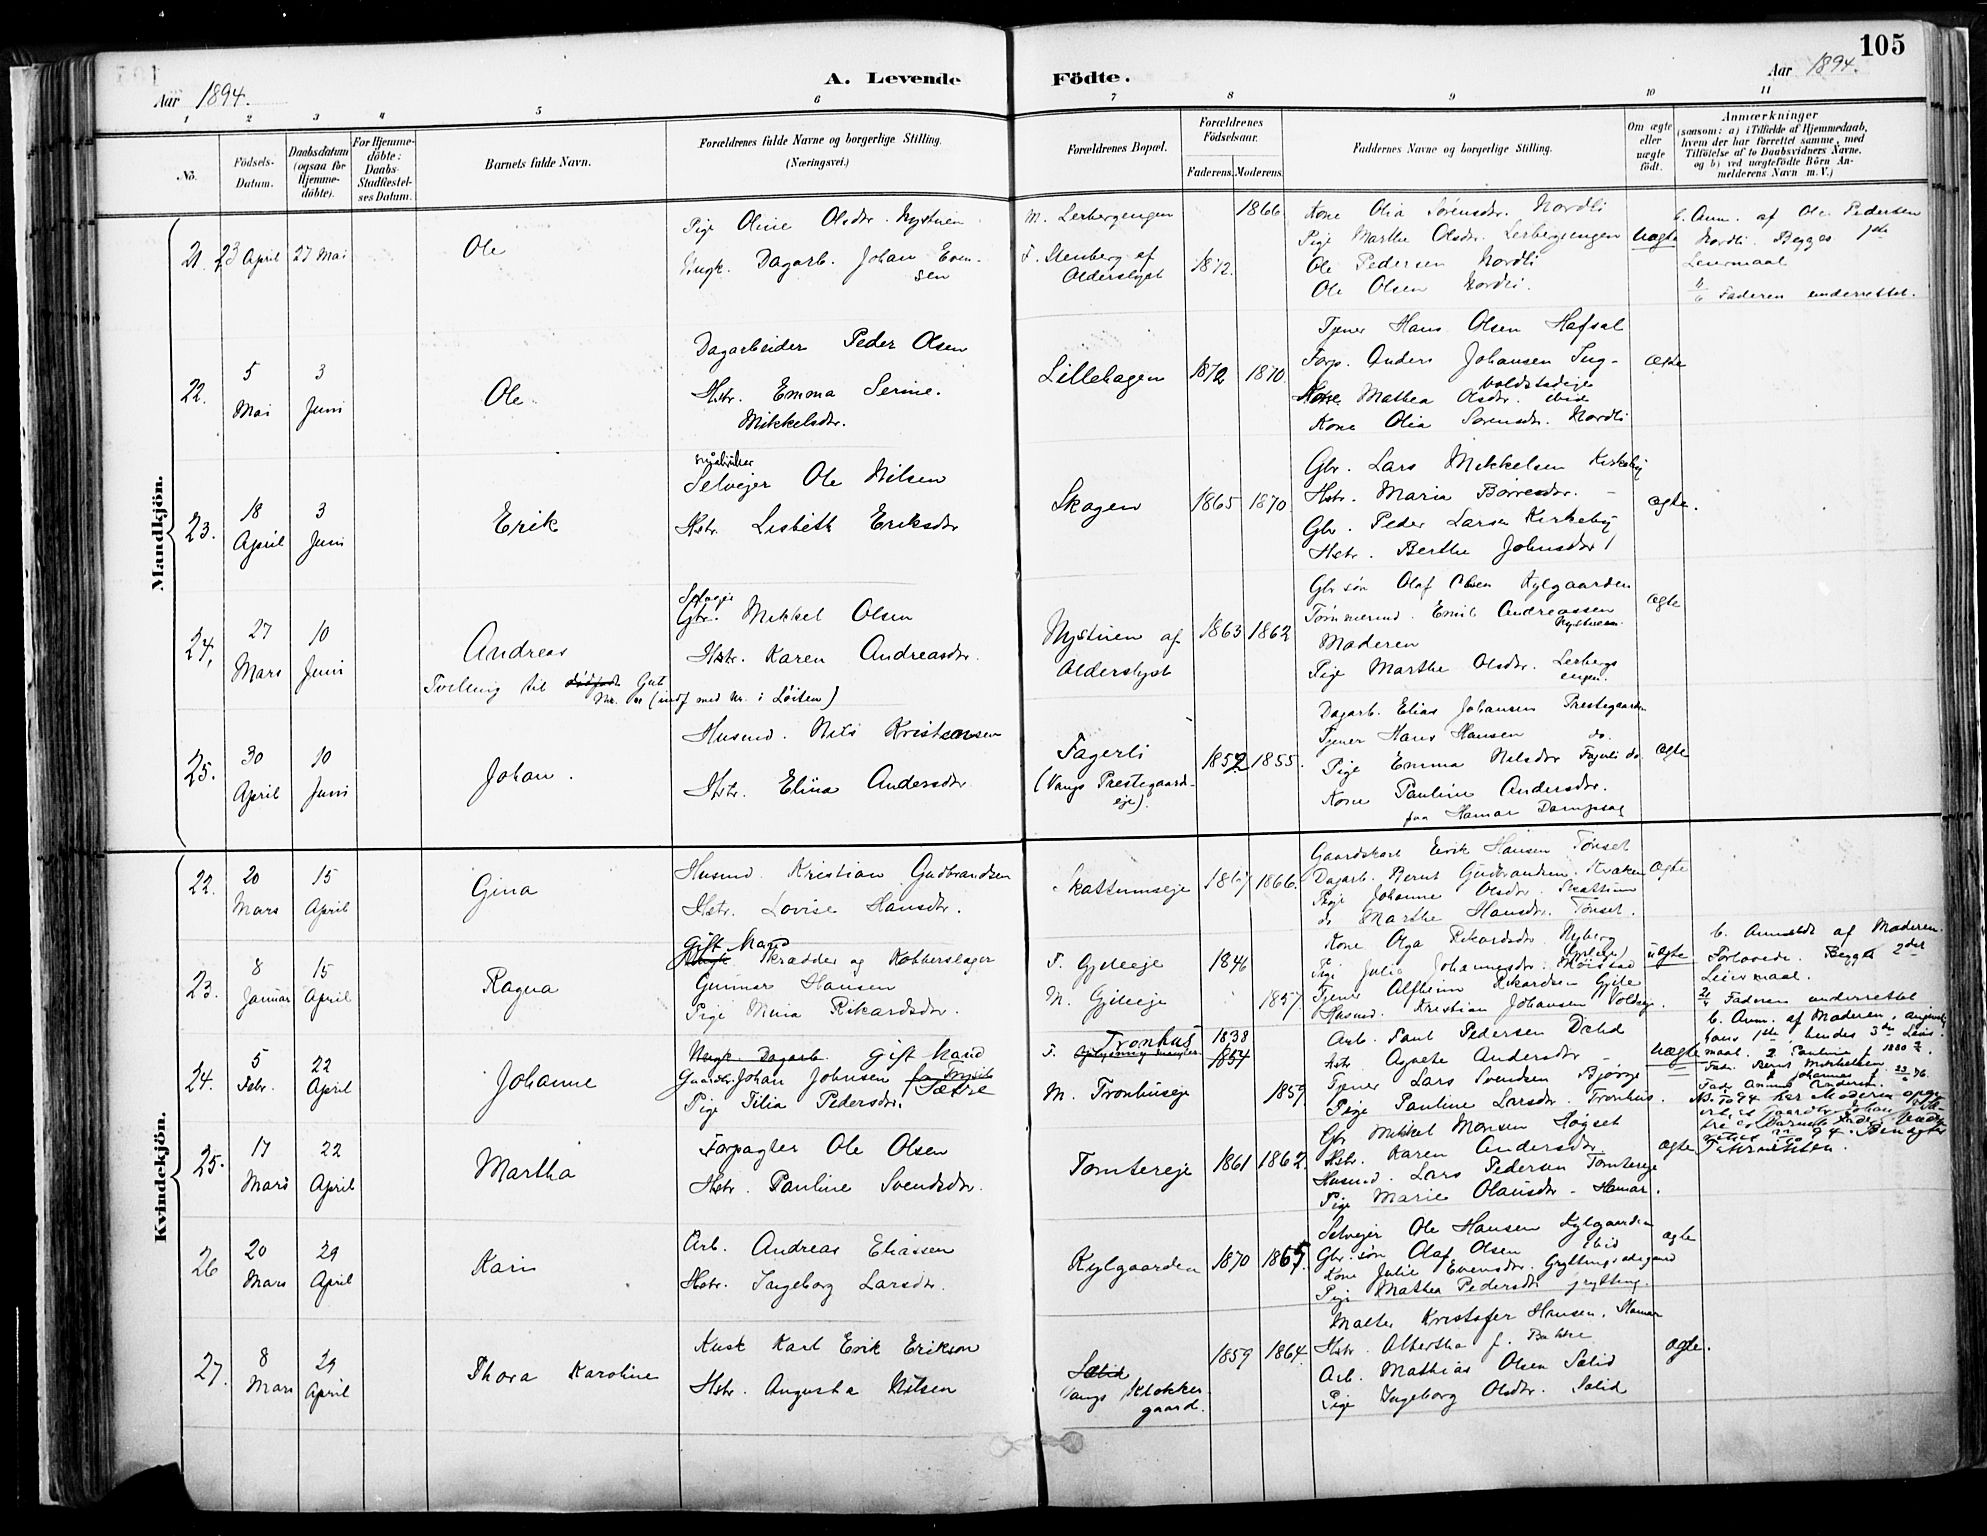 105
Aar 1894.
A. Levende Födte.
Aar 1894.
1 2 3 4 5 6 7 8 9 10 11
No.
Födsels-Datum.
Daabsdatum (ogsaa for Hjemme-döbte).
For Hjemme-döbte: Daabs-Stadfæstel-ses Datum.
Barnets fulde Navn.
Forældrenes fulde Navne og borgerlige Stilling. (Næringsvei.)
Forældrenes Bopæl.
Forældrenes Födselsaar.
Faderens. Moderens.
Faddernes Navne og borgerlige Stilling.
Om ægte eller uægte födt.
Anmærkninger
(saasom: a) i Tilfælde af Hjemmedaab,
hvem der har forrettet samme, med
Tilföielse af to Daabsvidners Navne,
og b) ved uægtefödte Börn An-
melderens Navn m. V.)
Mandkjön.
21. 23 April 27 Mai
Ole
Pige Oline Olsdtr. Nystuen
Ungk. Dagarb. Johan Even-
sen
M. Lerbergengen 1866
F. Stenberg af
Alderslyst 1872.
Kone Olia Sørensdtr. Nordli
Pige Marthe Olsdtr. Lerbergengen
Ole Pedersen Nordli
Ole Olsen Nordli.
Uægte
b. Anm. af Ole Pedersen
Nordli. Begges 1ste
Leiermaal
Faderen underrettet.
22. 5 Mai 3 Juni
Ole
Dagarbeider Peder Olsen
Hstr. Emma Serine.
Mikkelsdtr.
Lillehagen 1872 1870.
Tjener Hans Olsen Hafsal
Forp. Anders Johansen Ing-
voldstadeje
Kone Mathea Olsdtr. ibid
Kone Olia Sørensdtr. Nordli
ægte
23. 18 April 3 Juni
Erik
Selvejer Ole Nilsen
Hstr. Lisbeth Eriksdtr
Skogen 1865 1870
Gbr. Lars Mikkelsen Kirkeby
Hstr. Maria Børresdtr. -
Gbr. Peder Larsen Kirkeby
Hstr. Berthe Johnsdtr
ægte.
24. 27 Mars 10 Juni
Andreas
Tvilling til dødfødt Gut
Selvejer
Gbr. Mikkel Olsen
Hstr. Karen Andreasdtr.
Nystuen af
Alderslyst 1863 1862
Gbr søn Olaf Olsen Kylgaarden
Tømmermd. Emil Andreassen
Nystuen.
Moderen
Pige Marthe Olsdtr. Lerbergs
engen.
ægte
25. 30 April 10 Juni
Johan.
Husmd. Nils Kristensen
Hstr. Elina Andersdtr.
Fagerli
(Vangs Prestegaards-
eje). 1852 1855.
Dagarb. Elias Johansen Prestegaarden
Tjener Hans Hansen do.
Pige Emma Nilsdtr Fagerli do
Kone Pauline Andersdtr.
paa Hamar Dampsag
ægte
Kvindekjön.
22. 20 Mars 15 April
Gina
Husmd. Kristian Gudbrandsen
Hstr. Lovise Hansdtr.
Skattumseje 1867 1866.
Gaardskarl Erik Hansen Tønset
Dagarb. Bernt Gudbrandsen.
Pige Johanne Olsdtr. Skattum
do Marthe Hansdtr. Tønset.
ægte
23. 8 Januar 15 April
Ragna
Gift Mand
Ungk. Skrædder og Kobberslager
Gunnar Hansen
Pige Mina Rikardsdtr.
F. Gjeleeje 1846
M. Gjeleeje 1857.
Kone Olga Rikardsdtr. Nyberg
Pige Julie Johannesdtr.
Tjener Alfheim Rikardsen Gjele
Husmd. Kristian Johansen
uægte
b. Anmeldt af Moderen.
Forlovede. Begges 2det
Leiermaal.
Faderen underrettet
24. 5 Febr. 22 April
Johanne
Ungk. Dagarb. Gift Mand
Gaardbr. Johan Johnsen
Sætre
Pige Tilia Pedersdtr.
F. Tronhus 1838
1854
M. Tronhuseje 1859
Arb. Paul Pedersen
Hstr Agnete Andersdtr -
Tjener Lars Svendsen Bjørge
Pige Pauline Larsdtr. Tronhus.
uægte
b. Anm. af Moderen, angivelig
hans 1ste, hendes 3die Leier-
maal.
25. 17 Mars 22 April
Martha
Forpagter Ole Olsen
Hstr. Pauline Svendsdtr.
Tomtereje 1861 1862.
Gbr Mikkel Monsen Høgset
Hstr. Karen Andersdtr
Husmd. Lars Pedersen Tomtereje
Pige Marie Olausdtr - Hamar.
ægte
26 20 Mars 29 April
Karin
Arb. Andreas Eliassen
Hstr. Ingeborg Larsdtr.
Kylgaarden 1870 1865.
Selvejer Ole Hansen Kylgaarden
Gbr. søn Olaf Olsen ibid
Kone Julie Evensdtr.
Pige Mathea Pedersdtr
ægte
27. 8 Mars 29 April
Thora Karoline
Kusk Karl Erik Erikson
Hstr. Augusta Nilsen
Sælid
Vangs Klokker-
gaard. 1859 1864.
Maler Kristofer Hansen. Hamar
Hstr. Albertha
Arb. Mathias Olsen Sælid
Pige Ingeborg Olsdtr. Sælid
ægte.